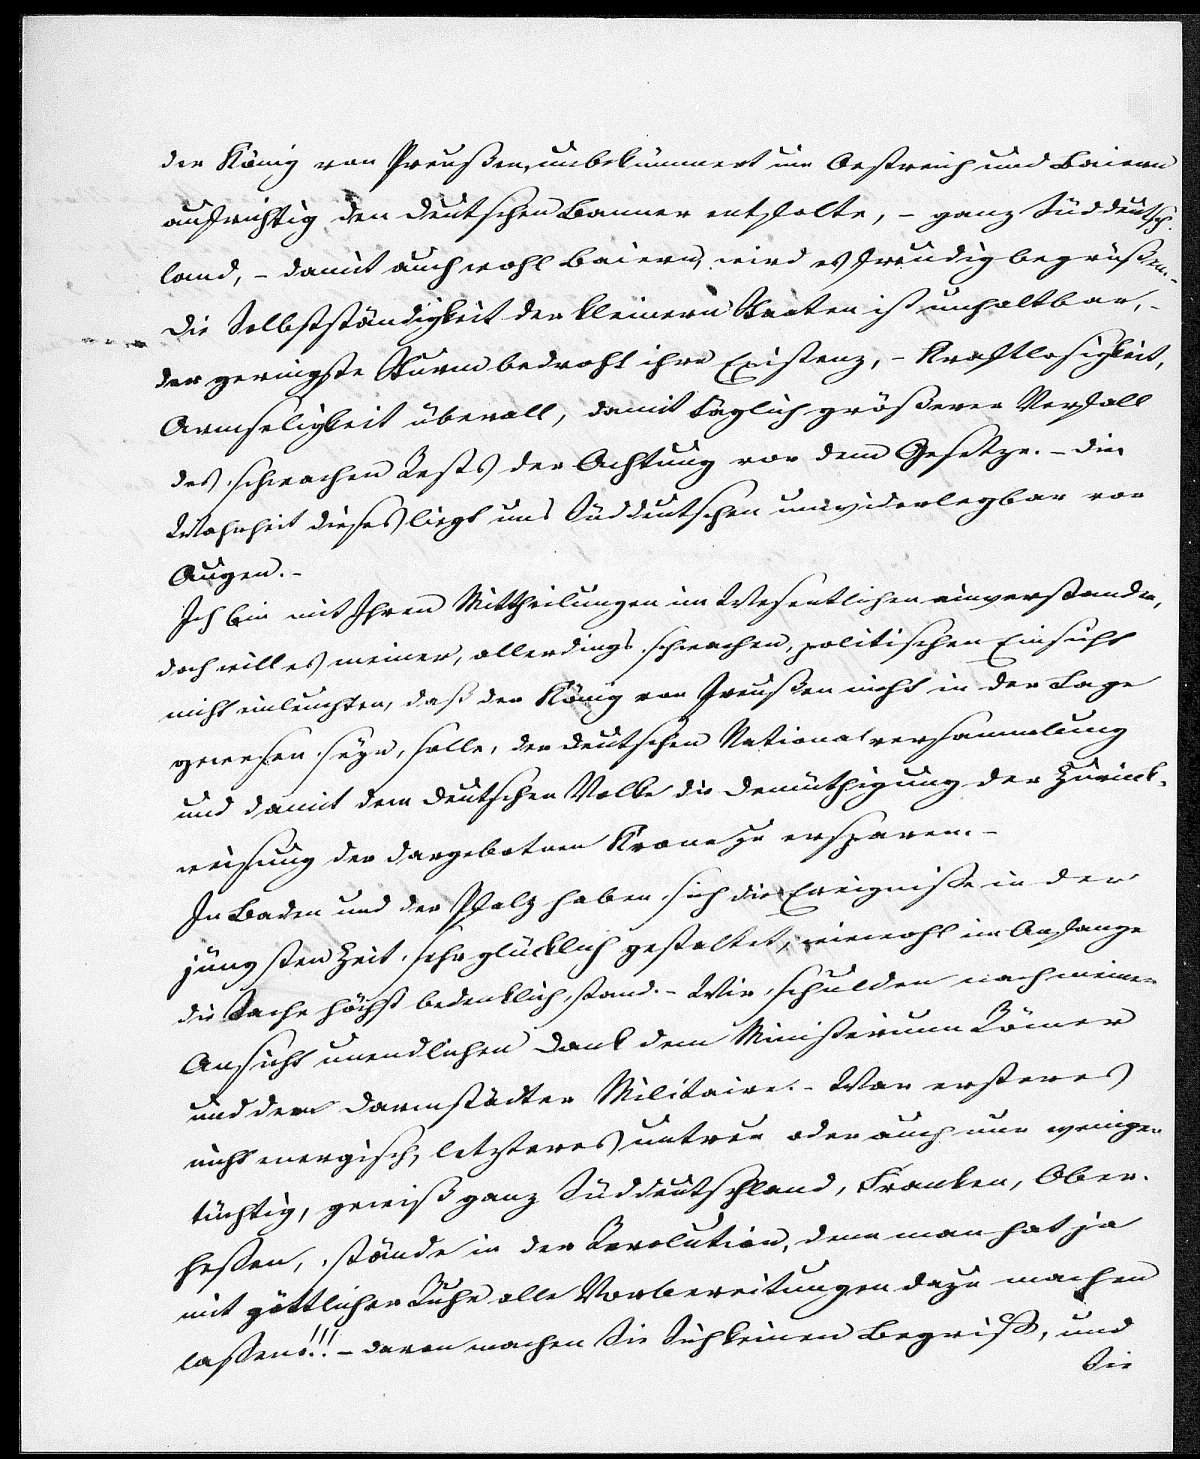 der König von Preußen, unbekümmert um Oestreich und Baiern
aufrichtig den deutschen Banner entfalte, – ganz Süddeutsch-
land, – damit auch wohl Baiern, wird es freudig begrüßen. –
Die Selbstständigkeit der kleinern Staaten ist unhaltbar, –
der geringste Sturm bedroht ihre Existenz, – Kraftlosigkeit,
Armseligkeit überall, damit täglich größerer Verfall
des schwachen Rests der Achtung vor dem Gesetze. – die
Wahrheit dieses liegt uns Süddeutschen unwiderlegbar vor
Augen. –
Ich bin mit Ihren Mittheilungen im Wesentlichen einverstanden,
doch will es meiner, allerdings schwachen, politischen Einsicht
nicht einleuchten, daß der König von Preußen nicht in der Lage
gewesen seyn, solle, der deutschen Nationalversammlung
und damit dem deutschen Volke die Demüthigung der Zurück-
weisung der dargebotnen Krone zu ersparen. –
In Baden und der Pfalz haben sich die Ereigniße in der
jüngsten Zeit sehr glücklich gestaltet, wiewohl im Anfange
die Sache höchst bedenklich stand. – Wir schulden nach meiner
Ansicht unendlichen Dank dem Ministerium Römer
und dem Darmstädter Militaire. – War ersteres
nicht energisch, letzteres untreu oder auch nur weniger
tüchtig, gewiß ganz Süddeutschland, Franken, Ober-
heßen, stände in der Revolution, denn man hat ja
mit göttlicher Ruhe alle Vorbereitungen dazu machen
laßen!!! – davon machen Sie Sich keinen Begriff, und
Sie